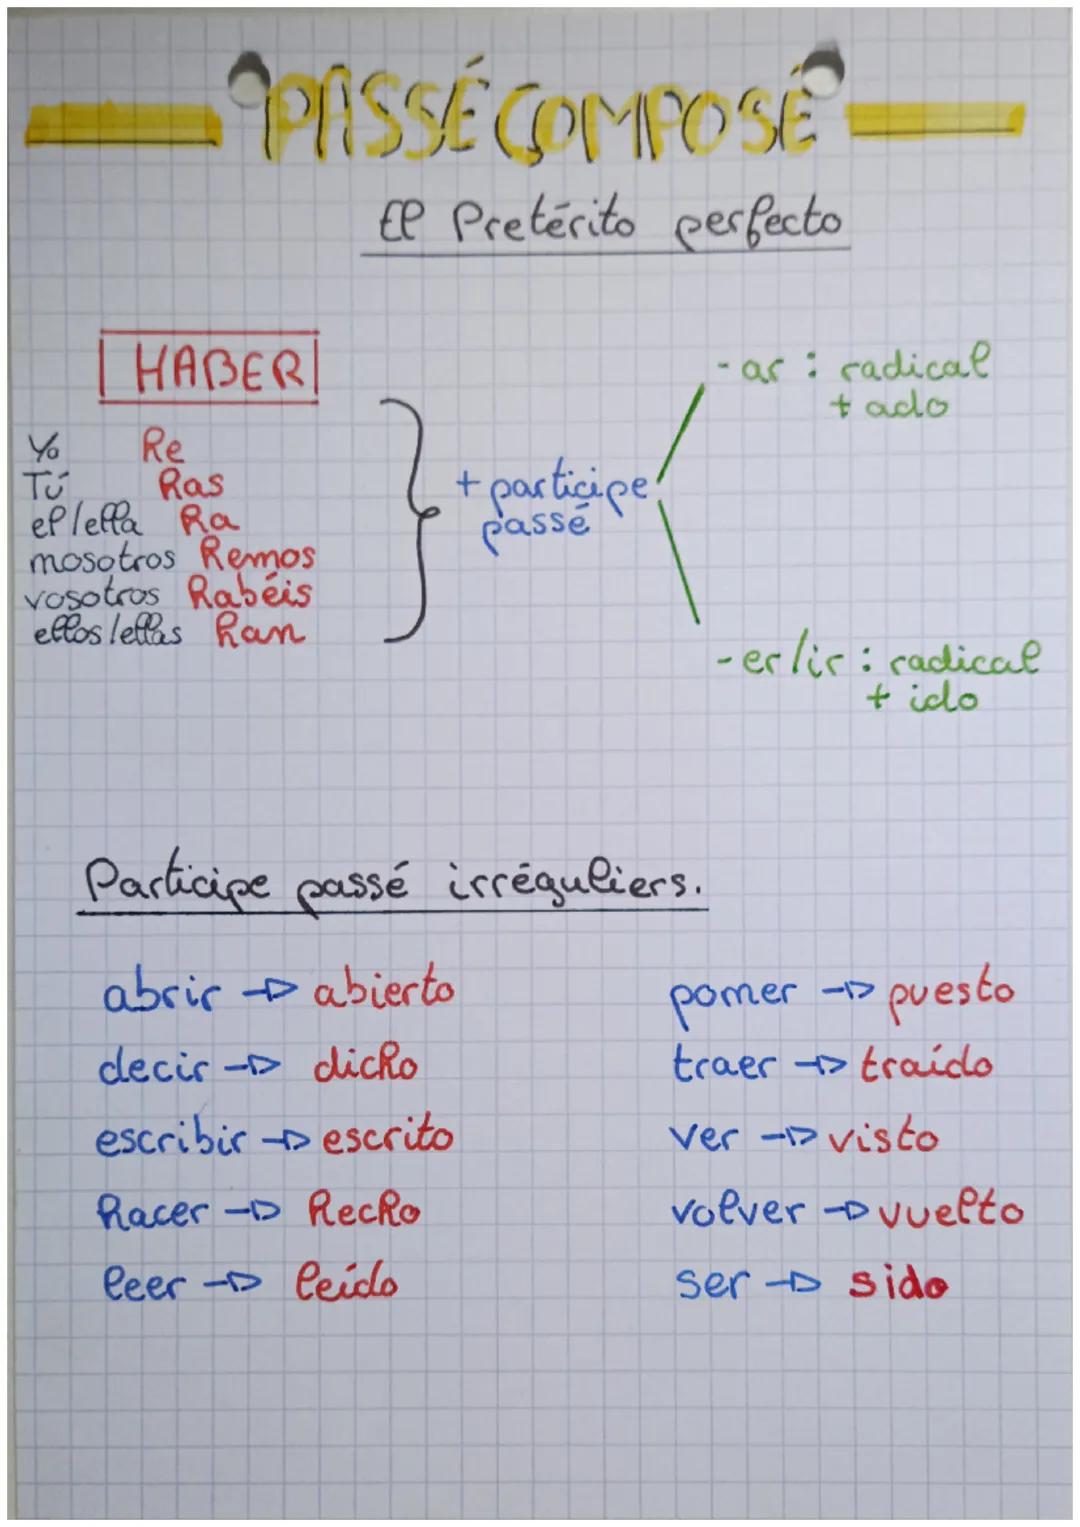 PASSÉ COMPOSÉ
El Pretérito perfecto
HABER
Yo he
Tú has
el/ella ha
nosotros hemos
vosotros habéis
ellos/ellas han
+ participe passé
-ar : radical
+ ado
-er/ir : radical
+ ido
Participe passé irréguliers.
abrir → abierto
decir → dicho
escribir → escrito
hacer → hecho
leer → leído
poner → puesto
traer → traído
ver → visto
volver → vuelto
ser → sido